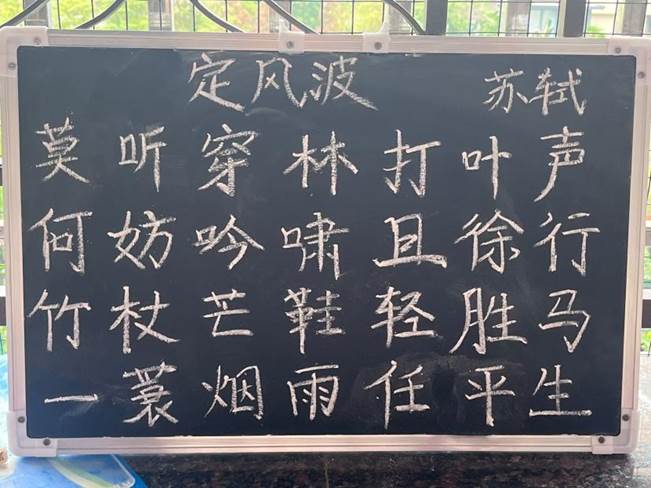 定风波 苏轼
莫听穿林打叶声
何妨吟啸且徐行
竹杖芒鞋轻胜马
一蓑烟雨任平生